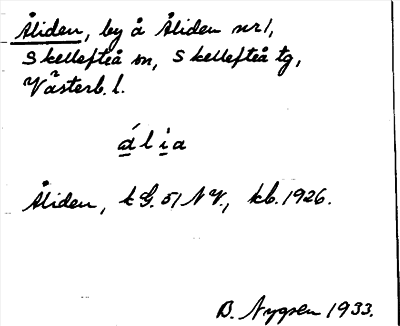 Åliden, by å Åliden nr 1,
Skellefteå sn, Skellefteå tg,
Västerb. l.
á l i a
Åliden, k G. 51 NV., kb. 1926.
B. Nygren 1933.